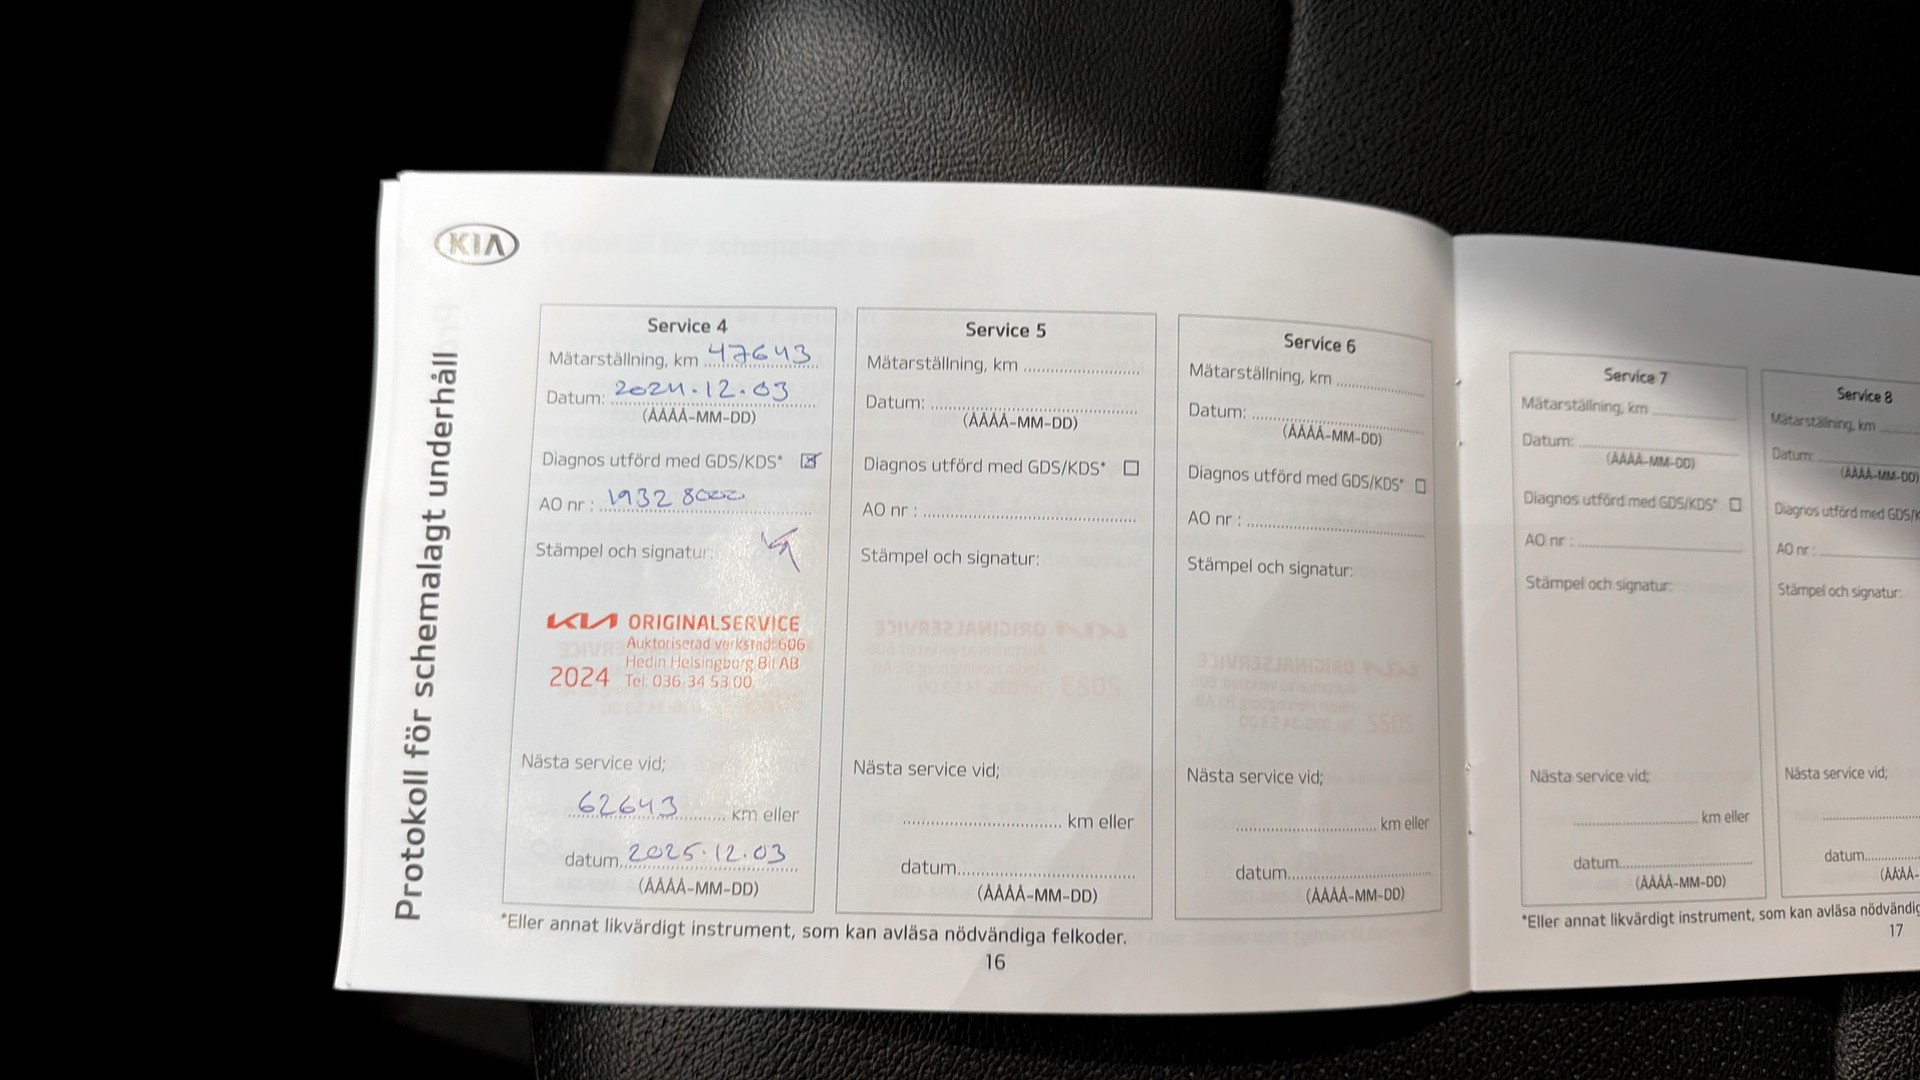 KIA
Protokoll för schemalagt underhåll
Service 4
Mätarställning, km 47643
Datum: 2024.12.03
(ÅÅÅÅ-MM-DD)
Diagnos utförd med GDS/KDS*
AO nr :
Stämpel och signatur:
KIA ORIGINALSERVICE
Auktoriserad verkstad: 606
Hedin Helsingborg Bil AB
2024 Tel: 036-34 53 00
Nästa service vid;
62643 km eller
datum 2025.12.03
(ÅÅÅÅ-MM-DD)
Service 5
Mätarställning, km
Datum:
(ÅÅÅÅ-MM-DD)
Diagnos utförd med GDS/KDS*
AO nr :
Stämpel och signatur:
Nästa service vid;
km eller
datum
(ÅÅÅÅ-MM-DD)
Service 6
Mätarställning, km
Datum:
(ÅÅÅÅ-MM-DD)
Diagnos utförd med GDS/KDS*
AO nr :
Stämpel och signatur:
Nästa service vid;
km eller
datum
(ÅÅÅÅ-MM-DD)
*Eller annat likvärdigt instrument, som kan avläsa nödvändiga felkoder.
16
Service 7
Mätarställning, km
Datum:
(ÅÅÅÅ-MM-DD)
Diagnos utförd med GDS/KDS*
AO nr :
Stämpel och signatur:
Nästa service vid;
km eller
datum
(ÅÅÅÅ-MM-DD)
Service 8
Mätarställning, km
Datum:
(ÅÅÅÅ-MM-DD)
Diagnos utförd med GDS/K
AO nr :
Stämpel och signatur:
Nästa service vid;
datum
(ÅÅÅÅ-
*Eller annat likvärdigt instrument, som kan avläsa nödvändig
17